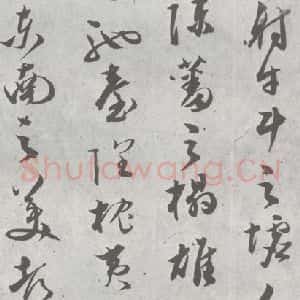 射牛斗之墟人
陳蕃之榻雄
馳臺隍枕夷
東南之美都
Shufawang.CN